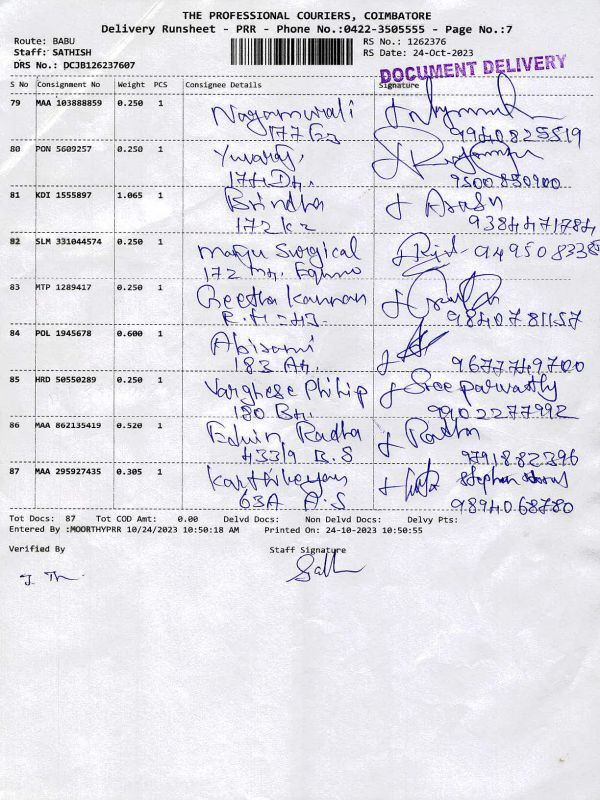 THE PROFESSIONAL COURIERS, COIMBATORE
Delivery Runsheet - PRR - Phone No.:0422-3505555 - Page No.:7
Route: BABU RS No.: 1262376
Staff: SATHISH RS Date: 24-Oct-2023
DRS No.: DCJB126237607 DOCUMENT DELIVERY
S No Consignment No Weight PCS Consignee Details Signature
79 MAA 103888859 0.250 1 Nagamurali
177 9940825519
80 PON 5609257 0.250 1 Yuvaraj
174 D4. 9500850900
81 KDI 1555897 1.065 1 Brindha
172 K2 9384471784
82 SLM 331044574 0.250 1 Manju Surgical
172
83 MTP 1289417 0.250 1 Geetha Kannan
9840781157
84 POL 1945678 0.600 1 Abisami
183 A4. 9677749700
85 HRD 50550289 0.250 1 Varghese Philip Sree parvathy
180 B4. 9902277992
86 MAA 862135419 0.520 1 Edwin Radha Radha
433/9 B.S 9791882396
87 MAA 295927435 0.305 1 Karthikeyan Stephan
63A A.S 9894068780
Tot Docs: 87 Tot COD Amt: 0.00 Delvd Docs: Non Delvd Docs: Delvy Pts:
Entered By :MOORTHYPRR 10/24/2023 10:50:18 AM Printed On: 24-10-2023 10:50:55
Verified By Staff Signature